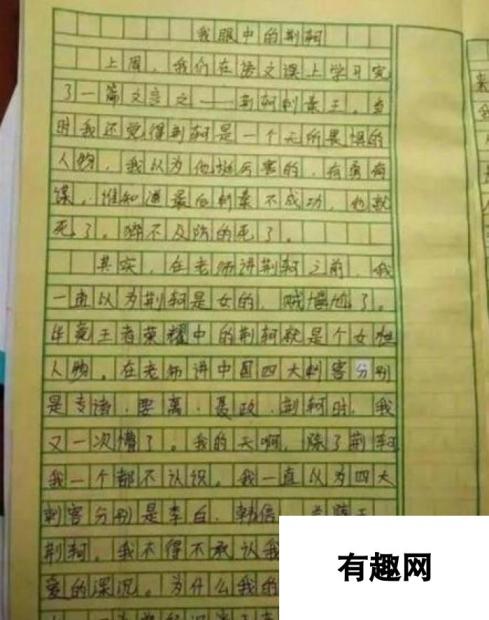 我眼中的荆轲
上周，我们在语文课上学习完
了一篇文言文——荆轲刺秦王。当
时我还觉得荆轲是一个无所畏惧的
人物，我认为他挺厉害的，有勇有
谋，谁知道最后刺秦不成功，他就
死了。猝不及防的死了。
其实，在老师讲荆轲之前，我
一直以为荆轲是女的，贼尴尬了。
毕竟王者荣耀中的荆轲就是个女性
人物。在老师讲中国四大刺客分别
是专诸、要离、聂政、荆轲时，我
又一次懵了。我的天啊，除了荆轲
我一个都不认识。我一直以为四大
刺客分别是李白、韩信、兰陵王、
荆轲。我不得不承认我
爱的深沉。为什么我的
有趣网